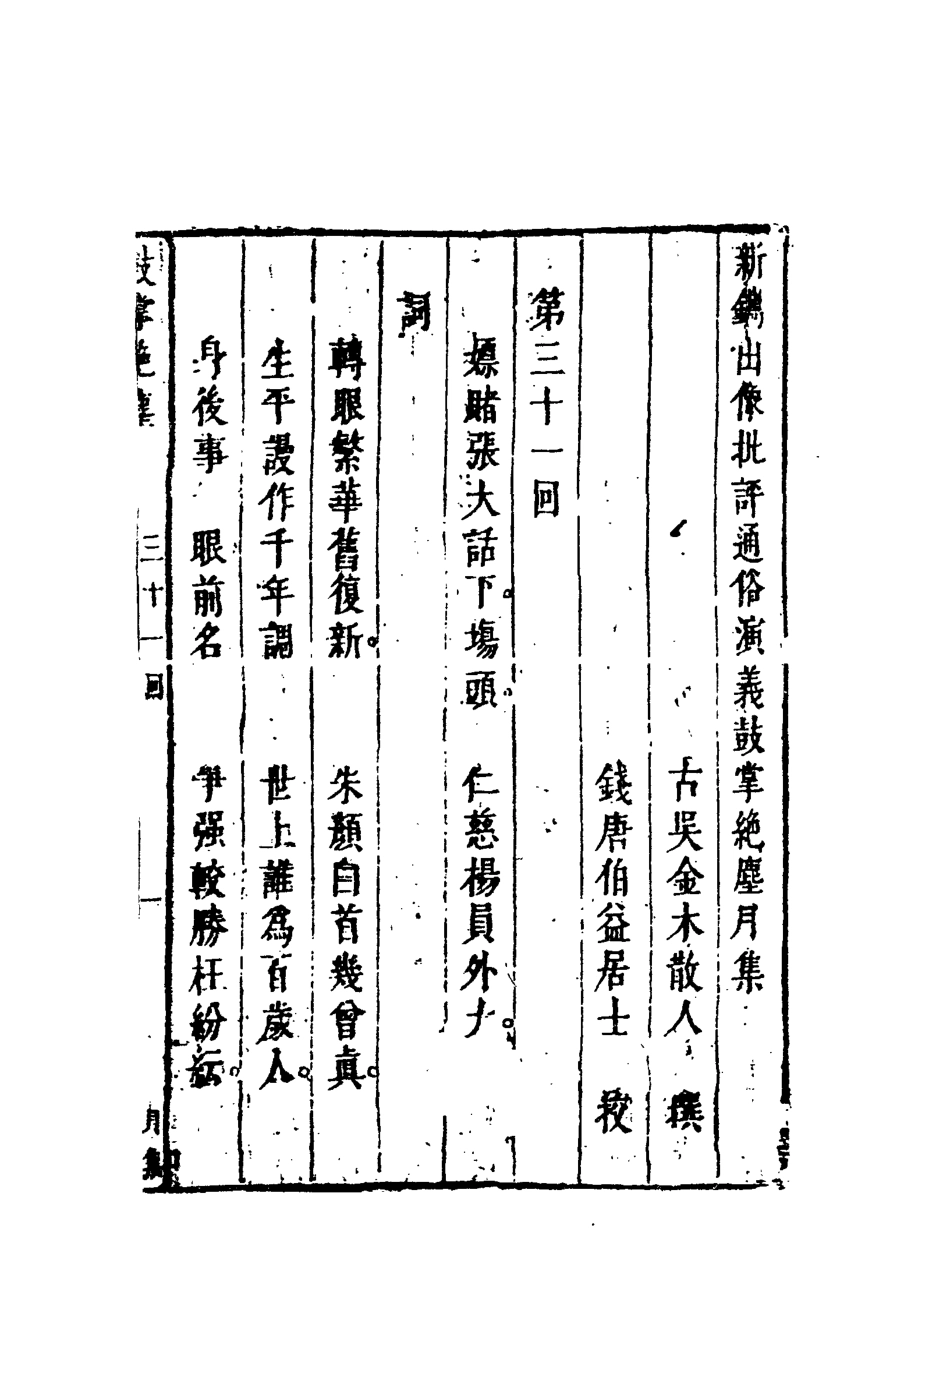 新鐫出像批評通俗演義鼓掌絶塵月集
古吳金木散人 撰
錢唐伯益居士 校
第三十一回
嫖賭張大話下塲頭 仁慈楊員外大
詞
轉眼繁華舊復新 朱顏白首幾曾真
生平謾作千年調 世上誰爲百歲人
身後事 眼前名 爭强較勝枉紛紜
鼓掌絶塵 三十一回 一 月集